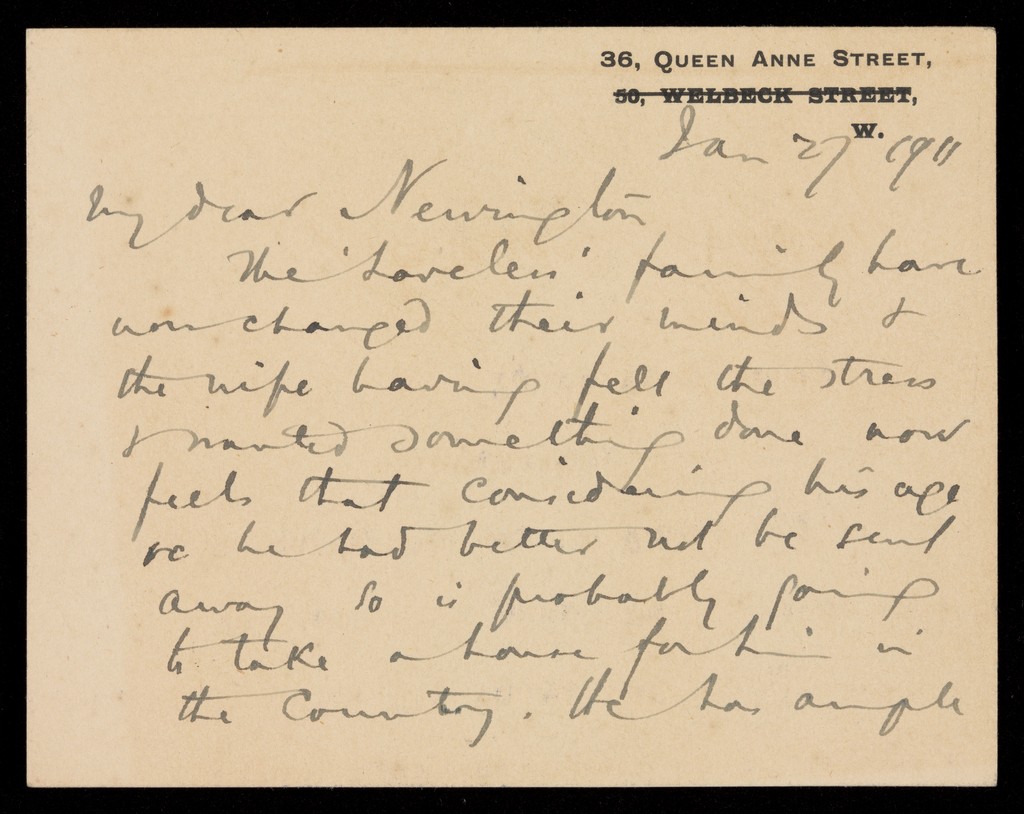 36, QUEEN ANNE STREET,
50, WELBECK STREET,
W.
Jan 27 1911
My dear Newington
The 'Loveless' family have
now changed their minds &
the wife having felt the stress
& wanted something done now
feels that considering his age
&c he had better not be sent
away so is probably going
to take a house for him in
the Country. He has ample